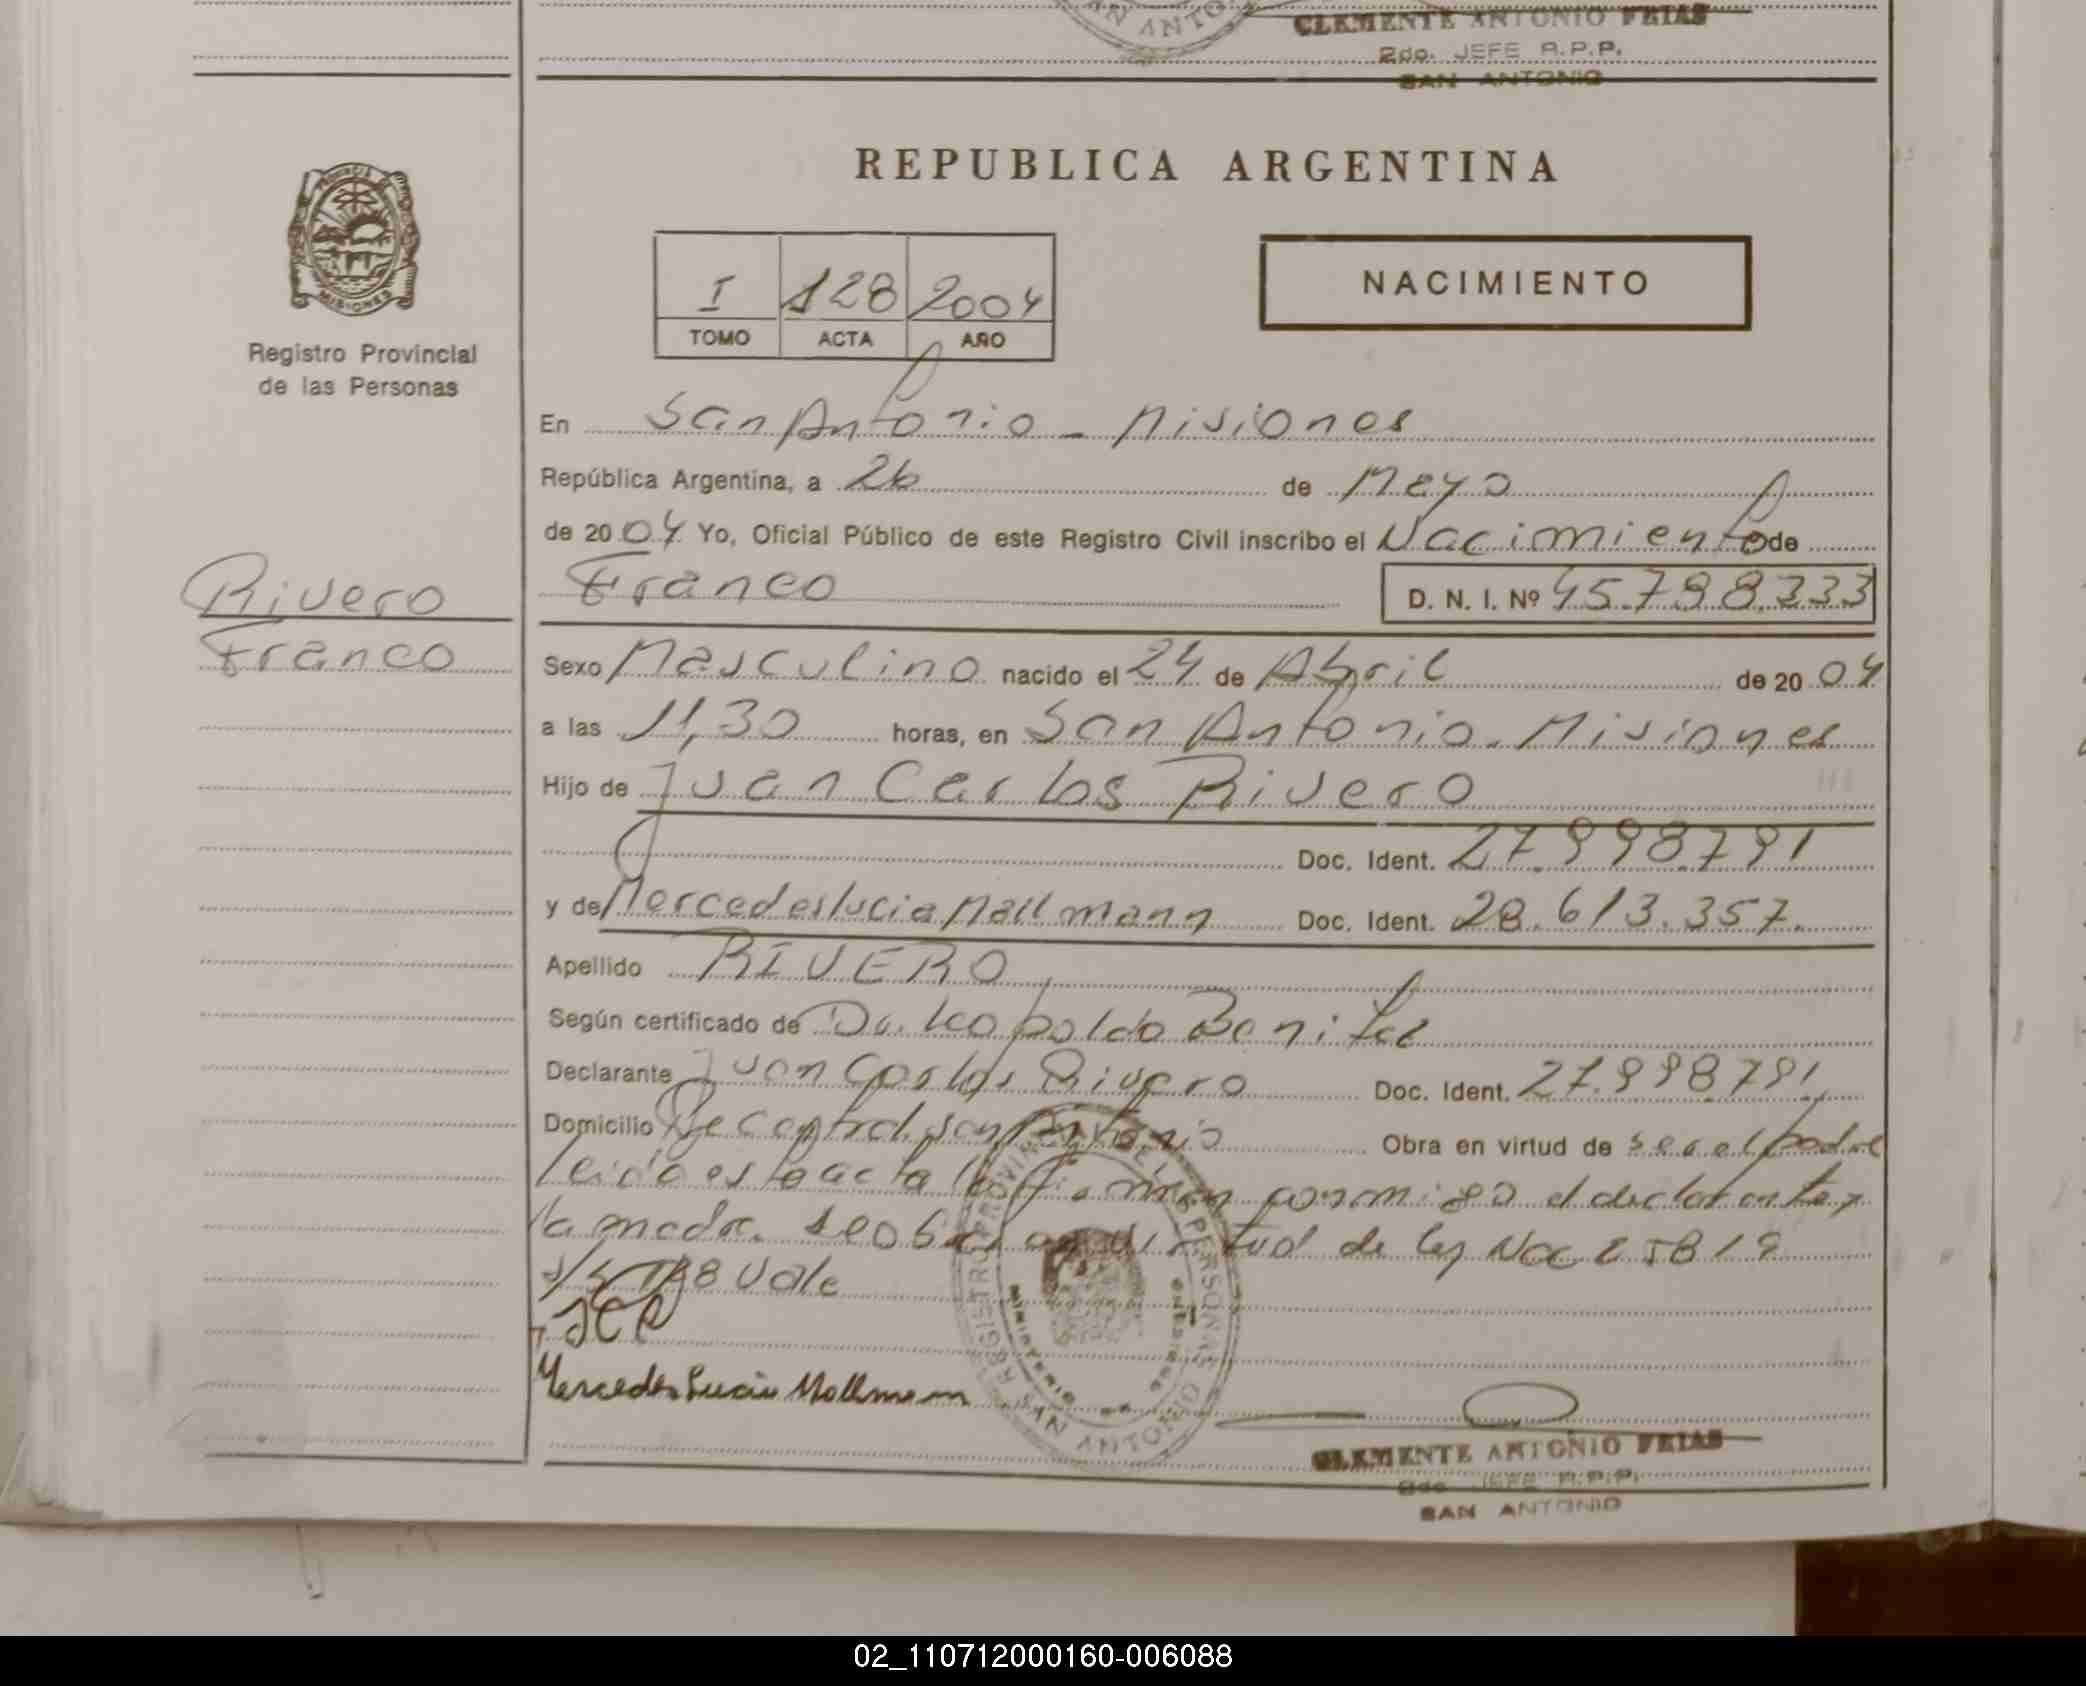 SAN ANTO
CLEMENTE ANTONIO FRIAS
2do. JEFE R.P.P.
SAN ANTONIO
PROVINCIA DE
MISIONES
Registro Provincial
de las Personas
REPUBLICA ARGENTINA
I 128 2004
TOMO ACTA AÑO
NACIMIENTO
En San Antonio - Misiones
República Argentina, a 26 de Mayo
de 2004 Yo, Oficial Público de este Registro Civil inscribo el Nacimiento de
Franco D. N. I. Nº 45.798.333
Rivero
Franco
Sexo Masculino nacido el 24 de Abril de 2004
a las 11,30 horas, en San Antonio. Misiones
Hijo de Juan Carlos Rivero
Doc. Ident. 27.998.791
y de Mercedes lucia Mallmann Doc. Ident. 28.613.357.
Apellido RIVERO
Según certificado de Da. Leopoldo Benitez
Declarante Juan Carlos Rivero Doc. Ident. 27.998791
Domicilio san Antonio Obra en virtud de ser el padre
leida esta acta la firman conmigo el declarante y
la madre. virtud de ley Nac 25819
Vale
JCR
Mercedes Lucia Mallmann
REGISTRO PROVINCIAL DE LAS PERSONAS
MINISTERIO DE GOBIERNO
SAN ANTONIO
CLEMENTE ANTONIO FRIAS
2do JEFE R.P.P.
SAN ANTONIO
02_110712000160-006088